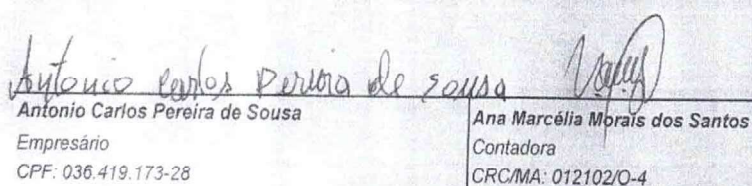 Antonio Carlos Pereira de Sousa
Antonio Carlos Pereira de Sousa
Empresário
CPF: 036.419.173-28
Ana Marcélia Morais dos Santos
Contadora
CRC/MA: 012102/O-4